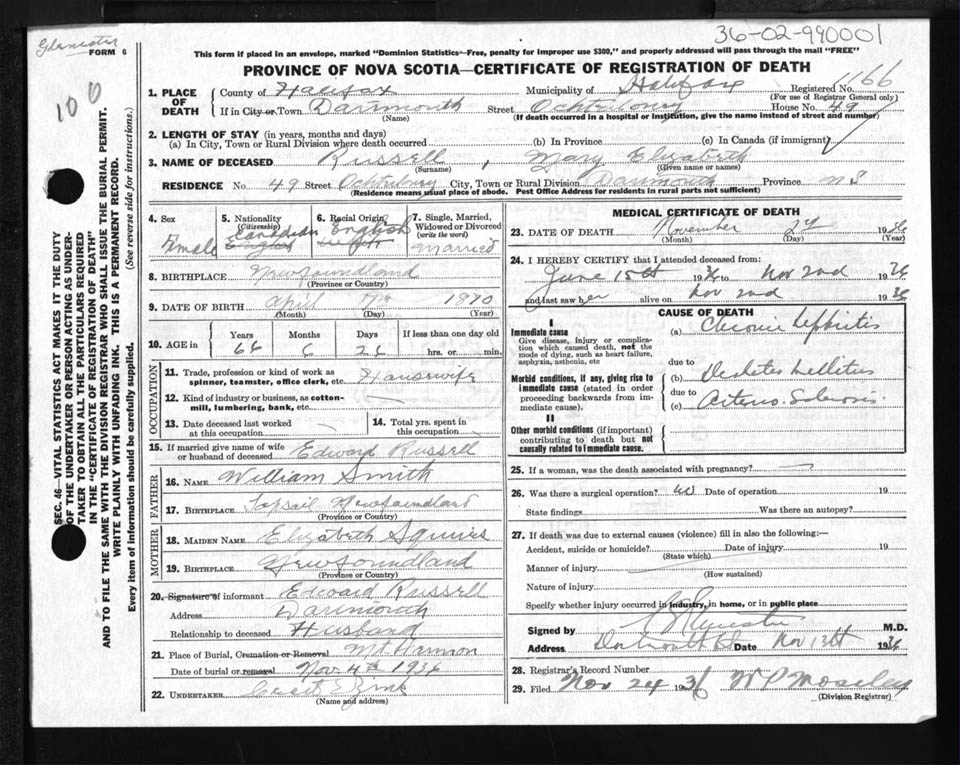 36-02-990001
FORM 6
100
This form if placed in an envelope, marked "Dominion Statistics—Free, penalty for improper use $300," and properly addressed will pass through the mail "FREE"
PROVINCE OF NOVA SCOTIA—CERTIFICATE OF REGISTRATION OF DEATH
1. PLACE OF DEATH
County of Halifax Municipality of Halifax Registered No. 6166
(For use of Registrar General only)
If in City or Town Dartmouth Street Ochterloney House No. 49
(Name) (If death occurred in a hospital or institution, give the name instead of street and number)
2. LENGTH OF STAY (in years, months and days)
(a) In City, Town or Rural Division where death occurred (b) In Province (c) In Canada (if immigrant)
3. NAME OF DECEASED Russell, Mary Elizabeth
(Surname) (Given name or names)
RESIDENCE No. 49 Street Ochterloney City, Town or Rural Division Dartmouth Province N S
(Residence means usual place of abode. Post Office Address for residents in rural parts not sufficient)
4. Sex Female
5. Nationality (Citizenship) Canadian English
6. Racial Origin English
7. Single, Married, Widowed or Divorced (write the word) Married
8. BIRTHPLACE Newfoundland
(Province or Country)
9. DATE OF BIRTH April 7th 1870
(Month) (Day) (Year)
10. AGE in Years Months Days If less than one day old
66 6 26 hrs. or min.
OCCUPATION
11. Trade, profession or kind of work as spinner, teamster, office clerk, etc. Housewife
12. Kind of industry or business, as cotton-mill, lumbering, bank, etc.
13. Date deceased last worked at this occupation
14. Total yrs. spent in this occupation
15. If married give name of wife or husband of deceased Edward Russell
FATHER
16. NAME William Smith
17. BIRTHPLACE Topsail Newfoundland
(Province or Country)
MOTHER
18. MAIDEN NAME Elizabeth Squires
19. BIRTHPLACE Newfoundland
(Province or Country)
20. Signature of informant Edward Russell
Address Dartmouth
Relationship to deceased Husband
21. Place of Burial, Cremation or Removal Mt Hermon
Date of burial or removal Nov. 4th 1936
22. UNDERTAKER Cecil E Zink
(Name and address)
MEDICAL CERTIFICATE OF DEATH
23. DATE OF DEATH November 2nd 1936
(Month) (Day) (Year)
24. I HEREBY CERTIFY that I attended deceased from:
June 15th 1936 to Nov 2nd 1936
and last saw her alive on Nov 2nd 1936
CAUSE OF DEATH
I
Immediate cause
Give disease, injury or complication which caused death, not the mode of dying, such as heart failure, asphyxia, asthenia, etc
(a) Chronic Nephritis
due to
Morbid conditions, if any, giving rise to immediate cause (stated in order proceeding backwards from immediate cause).
(b) Diabetes Mellitus
due to
(c) Arterio-Sclerosis.
II
Other morbid conditions (if important) contributing to death but not causally related to immediate cause.
25. If a woman, was the death associated with pregnancy?
26. Was there a surgical operation? No Date of operation 19
State findings Was there an autopsy?
27. If death was due to external causes (violence) fill in also the following:—
Accident, suicide or homicide? Date of injury 19
(State which)
Manner of injury
(How sustained)
Nature of injury
Specify whether injury occurred in industry, in home, or in public place
Signed by M.D.
Address Dartmouth Date Nov 13th 1936
28. Registrar's Record Number
29. Filed Nov 24 1936 W P Moseley
(Division Registrar)
SEC. 46—VITAL STATISTICS ACT MAKES IT THE DUTY
OF THE UNDERTAKER OR PERSON ACTING AS UNDERTAKER TO OBTAIN ALL THE PARTICULARS REQUIRED
IN THE "CERTIFICATE OF REGISTRATION OF DEATH"
AND TO FILE THE SAME WITH THE DIVISION REGISTRAR WHO SHALL ISSUE THE BURIAL PERMIT.
WRITE PLAINLY WITH UNFADING INK. THIS IS A PERMANENT RECORD.
Every item of information should be carefully supplied. (See reverse side for instructions.)